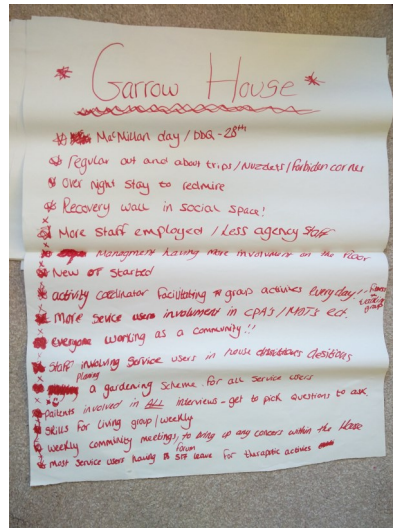 Garrow House
MacMillan day / BBQ - 28th
regular out and about trips / Nuzzlets / Forbiden corner
over night stay to redmire
Recovery walk in social space!
More staff employed / Less agency staff
Managment having more involvment on the floor
New OT Started
activity coordinator facilitating group activies everyday /
More Sevice users involvment in CPA's / MDTs ect.
Everyone working as a community!!
Staff involving service users in house desitions
planning
a gardening scheme for all service users
patients involved in ALL interviews - get to pick questions to ask.
Skills for Living group / weekly
weekly community meetings, to bring up any concers within the House
forum
most service users having S17 leave for theraputic activies